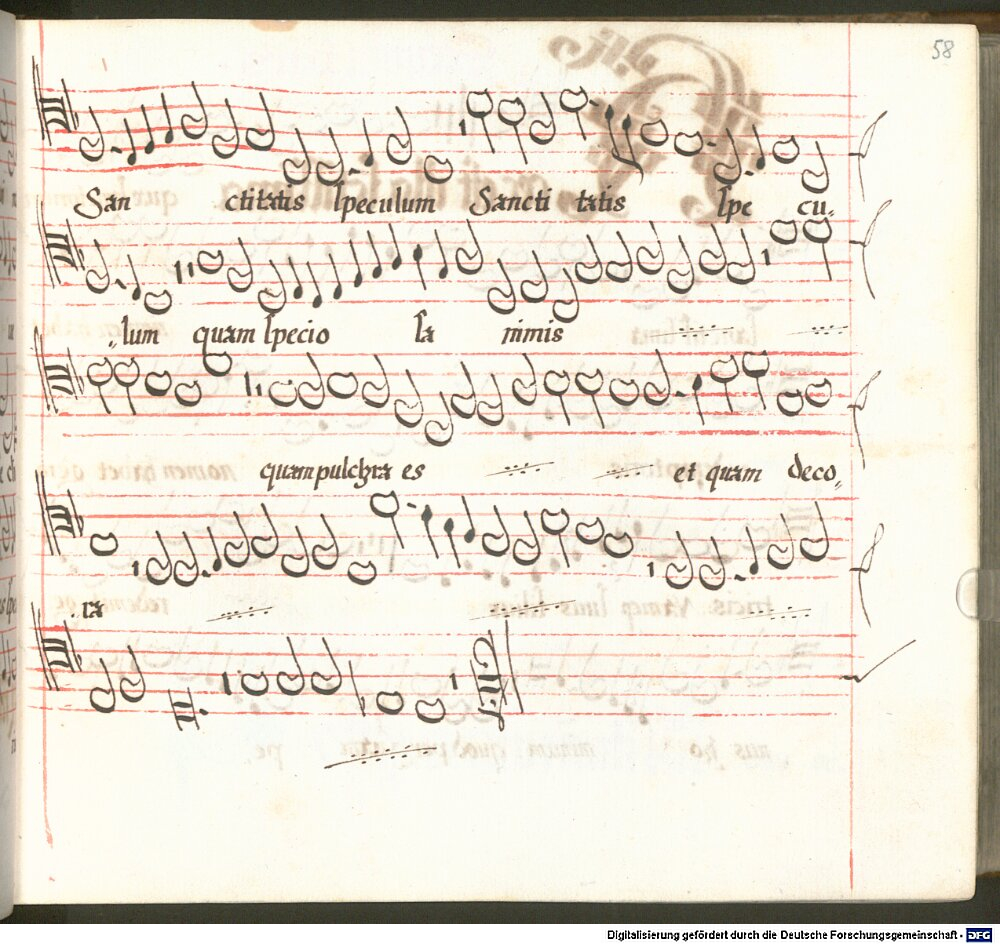 58
San ctitatis speculum Sancti tatis spe cu
lum quam specio sa nimis
quam pulchra es et quam deco
ra
Digitalisierung gefördert durch die Deutsche Forschungsgemeinschaft - DFG